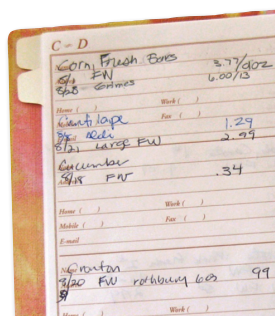 C - D
Corn, Fresh Ears 3.77/doz
8/1 FW 6.00/13
8/25 Grimes
Home ( ) Work ( )
Cantilope Fax ( )
8/5 aldi 1.29
8/21 Large FW 2.99
Cucumber
8/18 FW .34
Home ( ) Work ( )
Mobile ( ) Fax ( )
E-mail
Crouton
8/20 FW rothbury 6oz 99
Home ( ) Work ( )